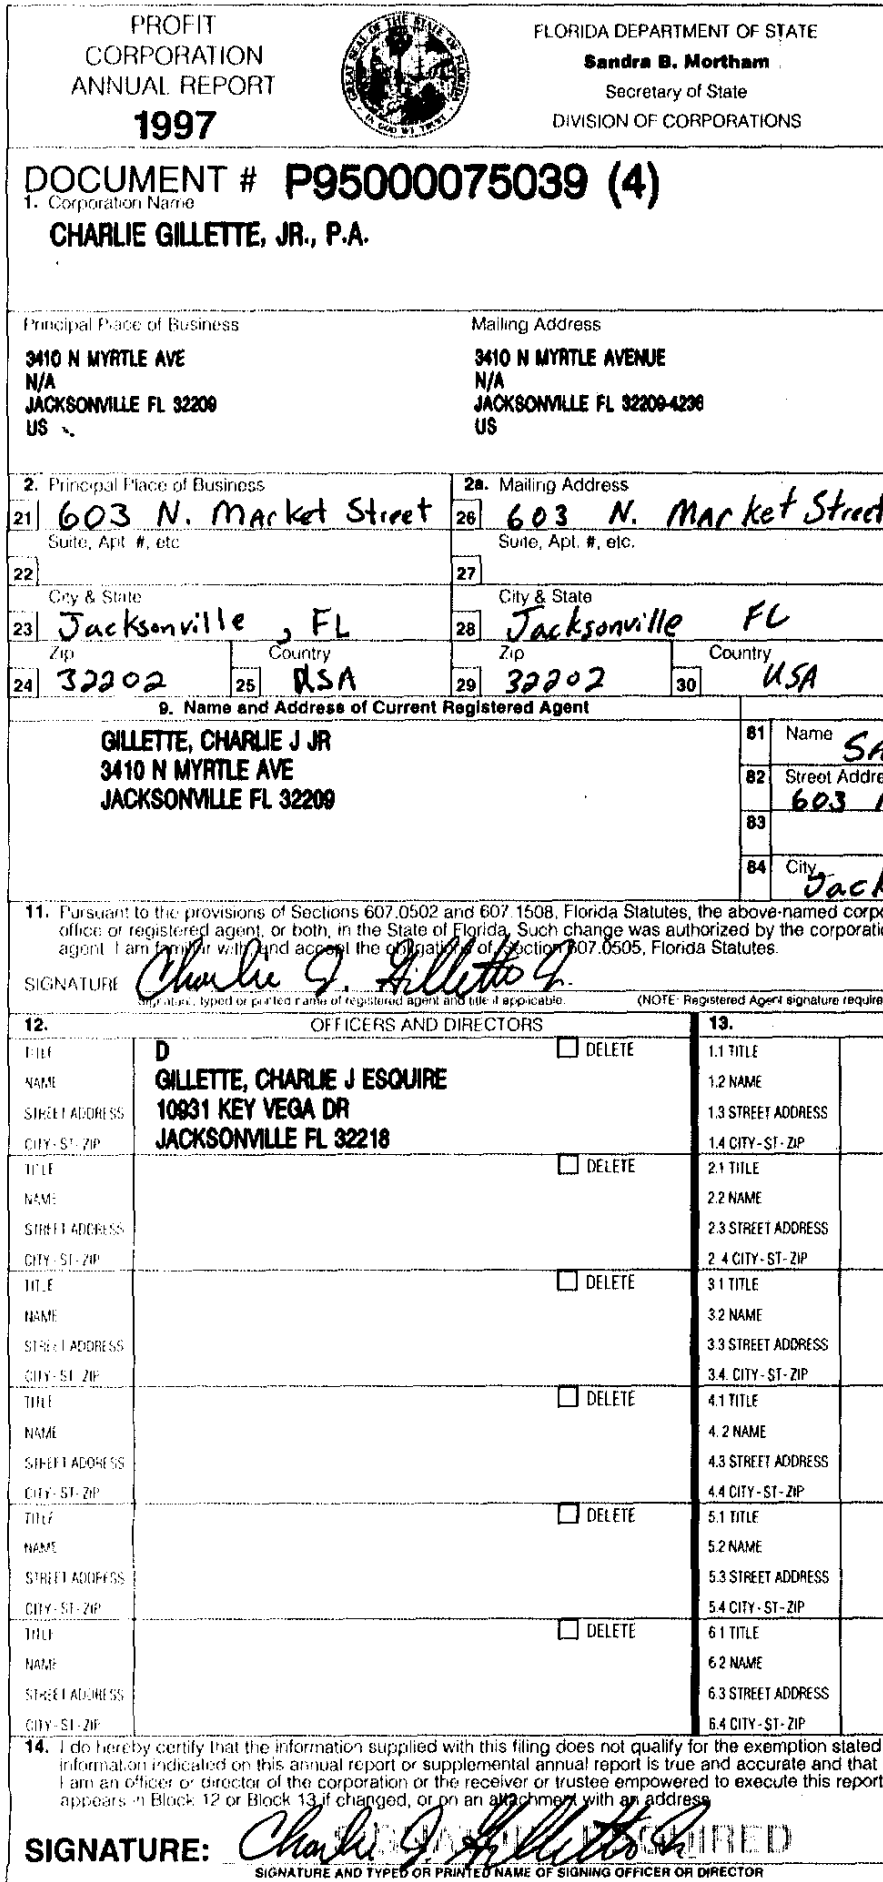 PROFIT
CORPORATION
ANNUAL REPORT
1997
GREAT SEAL OF THE STATE OF FLORIDA
IN GOD WE TRUST
FLORIDA DEPARTMENT OF STATE
Sandra B. Mortham
Secretary of State
DIVISION OF CORPORATIONS
DOCUMENT # P95000075039 (4)
1. Corporation Name
CHARLIE GILLETTE, JR., P.A.
Principal Place of Business
3410 N MYRTLE AVE
N/A
JACKSONVILLE FL 32209
US
Mailing Address
3410 N MYRTLE AVENUE
N/A
JACKSONVILLE FL 32209-4236
US
2. Principal Place of Business
21 603 N. Market Street
Suite, Apt. #, etc.
22
City & State
23 Jacksonville, FL
Zip
24 32202
Country
25 USA
2a. Mailing Address
26 603 N. Market Street
Suite, Apt. #, etc.
27
City & State
28 Jacksonville FL
Zip
29 32202
Country
30 USA
9. Name and Address of Current Registered Agent
GILLETTE, CHARLIE J JR
3410 N MYRTLE AVE
JACKSONVILLE FL 32209
81 Name SA
82 Street Addre
603
83
84 City
Jack
11. Pursuant to the provisions of Sections 607.0502 and 607.1508, Florida Statutes, the above-named corpo
office or registered agent, or both, in the State of Florida. Such change was authorized by the corporati
agent. I am familiar with, and accept the obligations of, Section 607.0505, Florida Statutes.
SIGNATURE Charlie J. Gillette Jr.
Signature, typed or printed name of registered agent and title if applicable.
(NOTE: Registered Agent signature require
12. OFFICERS AND DIRECTORS
13.
TITLE D DELETE
NAME GILLETTE, CHARLIE J ESQUIRE
STREET ADDRESS 10931 KEY VEGA DR
CITY-ST-ZIP JACKSONVILLE FL 32218
1.1 TITLE
1.2 NAME
1.3 STREET ADDRESS
1.4 CITY-ST-ZIP
TITLE DELETE
NAME
STREET ADDRESS
CITY-ST-ZIP
2.1 TITLE
2.2 NAME
2.3 STREET ADDRESS
2 4 CITY-ST-ZIP
TITLE DELETE
NAME
STREET ADDRESS
CITY-ST-ZIP
3 1 TITLE
3.2 NAME
3.3 STREET ADDRESS
3.4. CITY-ST-ZIP
TITLE DELETE
NAME
STREET ADDRESS
CITY-ST-ZIP
4.1 TITLE
4. 2 NAME
4.3 STREET ADDRESS
4.4 CITY-ST-ZIP
TITLE DELETE
NAME
STREET ADDRESS
CITY-ST-ZIP
5.1 TITLE
5.2 NAME
5.3 STREET ADDRESS
5.4 CITY-ST-ZIP
TITLE DELETE
NAME
STREET ADDRESS
CITY-ST-ZIP
6 1 TITLE
6 2 NAME
6.3 STREET ADDRESS
6.4 CITY-ST-ZIP
14. I do hereby certify that the information supplied with this filing does not qualify for the exemption stated
information indicated on this annual report or supplemental annual report is true and accurate and that
I am an officer or director of the corporation or the receiver or trustee empowered to execute this report
appears in Block 12 or Block 13 if changed, or on an attachment with an address
SIGNATURE REQUIRED
SIGNATURE: Charlie J. Gillette Jr.
SIGNATURE AND TYPED OR PRINTED NAME OF SIGNING OFFICER OR DIRECTOR